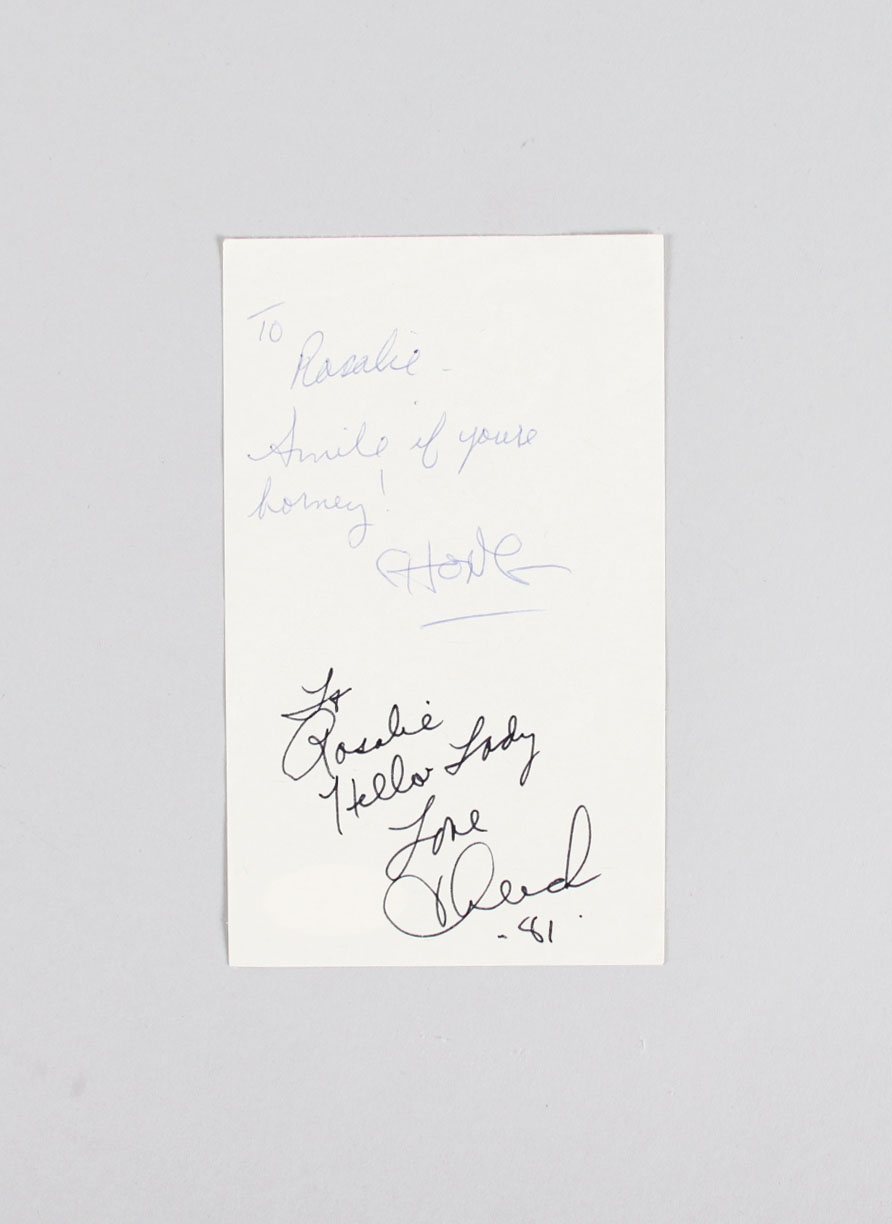 TO
Rosalie -
Smile if youre
horney!
CHONG
To
Rosalie
Hello Lady
Love
Cheech
- 81.